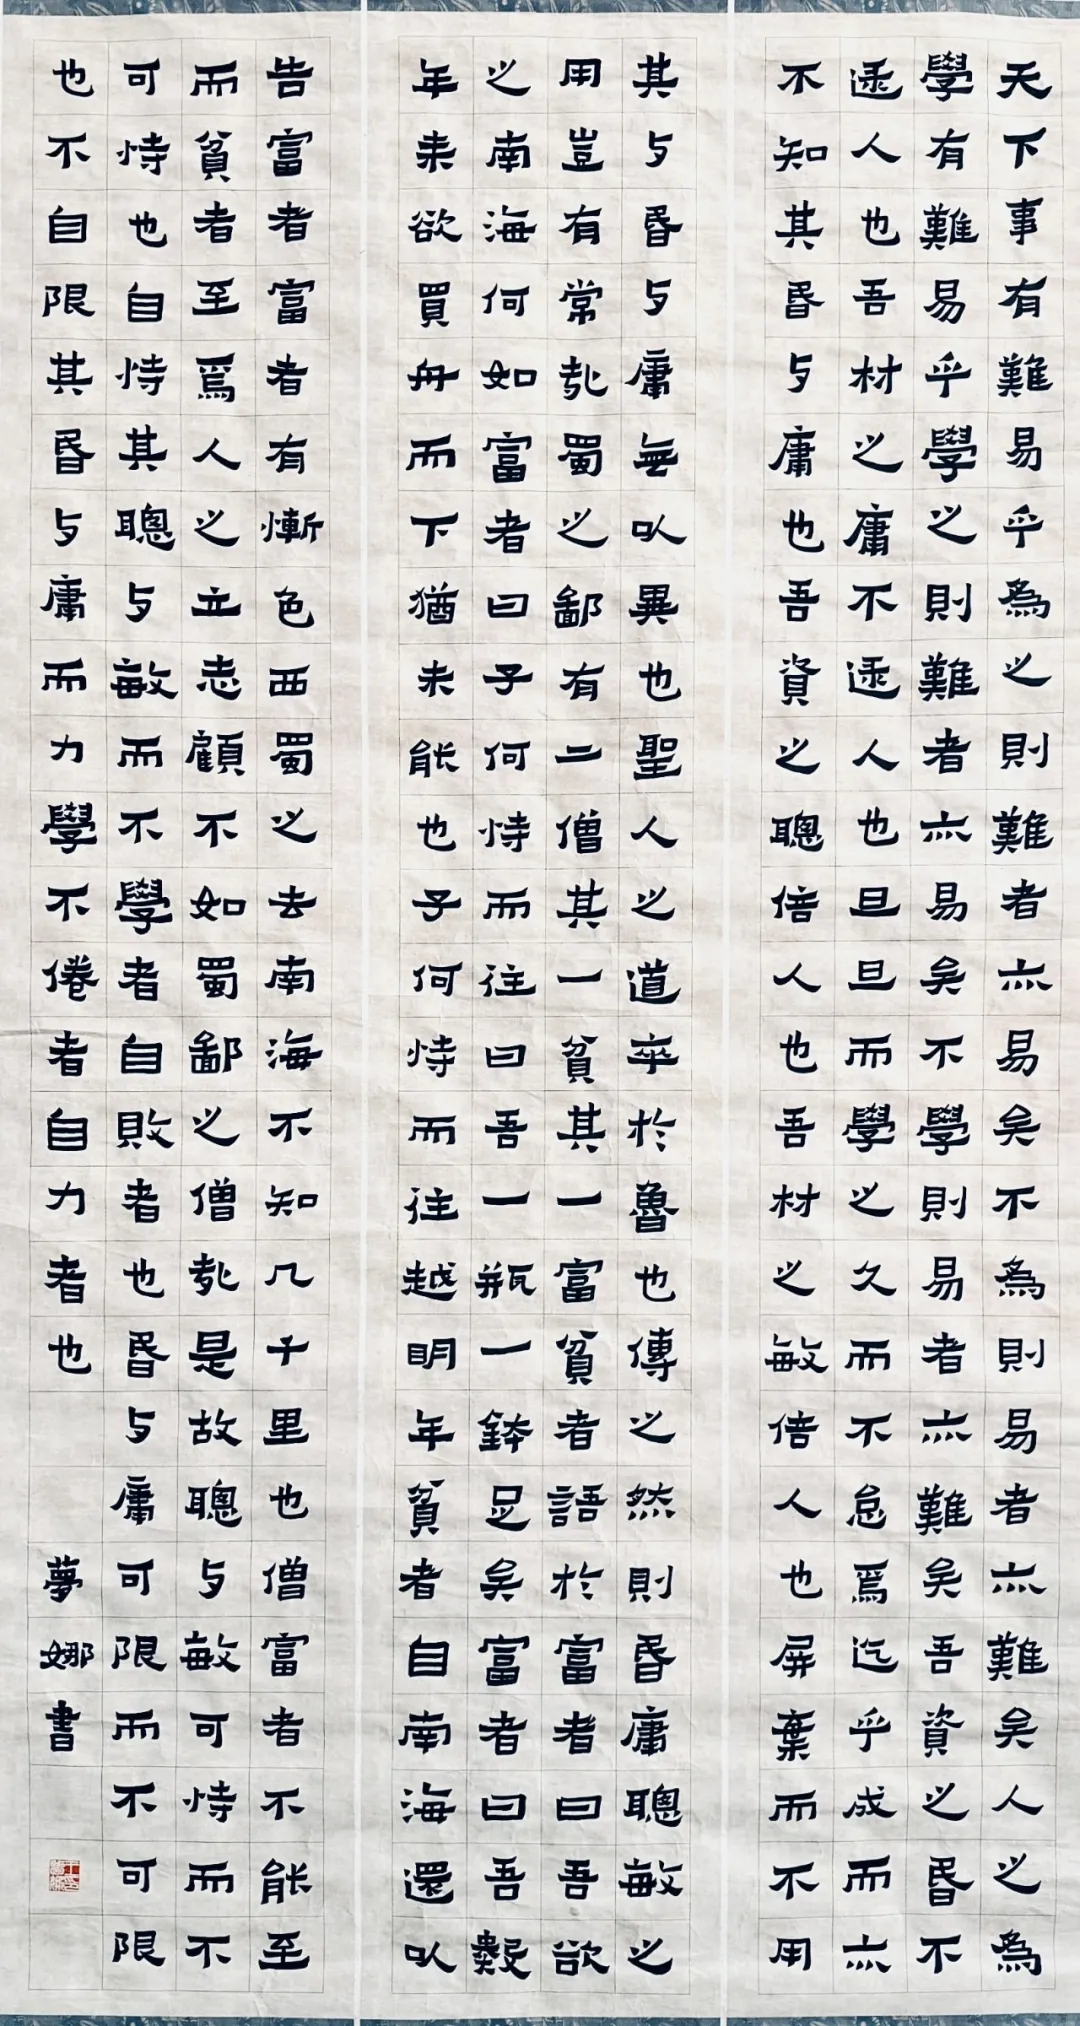 天下事有難易乎為之則難者亦易矣不為則易者亦難矣人之為
學有難易乎學之則難者亦易矣不學則易者亦難矣吾資之昏不
逮人也吾材之庸不逮人也旦旦而學之久而不怠焉迄乎成而亦
不知其昏与庸也吾資之聰倍人也吾材之敏倍人也屏棄而不用
其与昏与庸無以異也聖人之道卒於魯也傳之然則昏庸聰敏之
用豈有常哉蜀之鄙有二僧其一貧其一富貧者語於富者曰吾欲
之南海何如富者曰子何恃而往曰吾一瓶一鉢足矣富者曰吾數
年来欲買舟而下猶未能也子何恃而往越明年貧者自南海還以
告富者富者有慚色西蜀之去南海不知几千里也僧富者不能至
而貧者至焉人之立志顧不如蜀鄙之僧哉是故聰与敏可恃而不
可恃也自恃其聰与敏而不學者自敗者也昏与庸可限而不可限
也不自限其昏与庸而力學不倦者自力者也 夢娜書